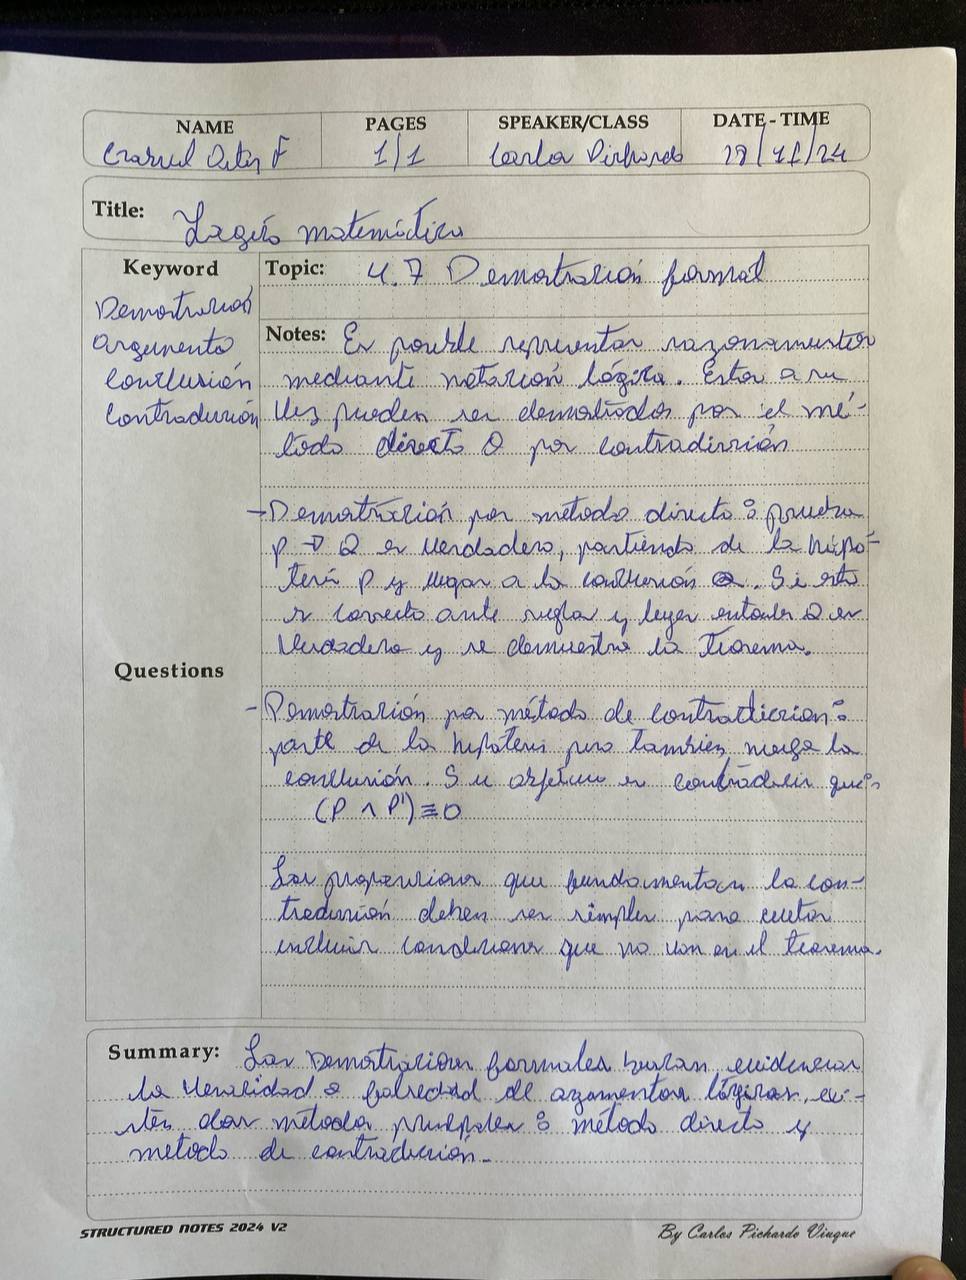 NAME PAGES SPEAKER/CLASS DATE - TIME
1/1 Carlos Pichardo /11/24
Title: Lógica matemática
Keyword
Demostración
argumento
Conclusión
Contradicción
Questions
Topic: 4.7 Demostración formal
Notes: Es posible representar razonamientos
mediante notación lógica. Estos a su
vez pueden ser demostrados por el mé-
todo directo O por contradicción
- Demostración por método directo: prueba
p → Q es verdadero, partiendo de la hipó-
tesis P y llegar a la conclusión Q. Si esto
es correcto ante regla y leyes entonces Q es
Verdadero y se demuestra la Teorema.
- Demostración por método de contradiccion:
parte de la hipotesis pero tambien niega la
conclusión. Su objetivo es contradecir que:
(P ∧ P') ≡ 0
Las proposiciones que fundamentan la con-
tradicción deben ser simples para evitar
incluir condiciones que no van en el teorema.
Summary: Las Demostraciones formales buscan evidenciar
la veracidad o falsedad de argumentos lógicos, exi-
sten dos métodos principales: método directo y
metodo de contradicción.
STRUCTURED NOTES 2024 V2
By Carlos Pichardo Viuque